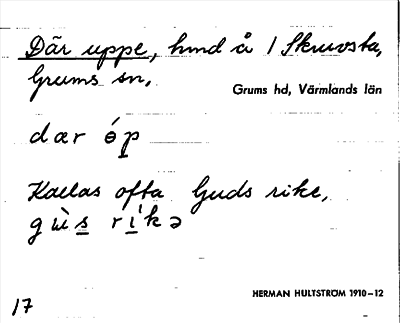 Där uppe, hmd å 1 Skruvsta,
Grums sn,
Grums hd, Värmlands län
dær óp
Kallas ofta Guds rike,
gɯ̀s ríkə
HERMAN HULTSTRÖM 1910–12
17